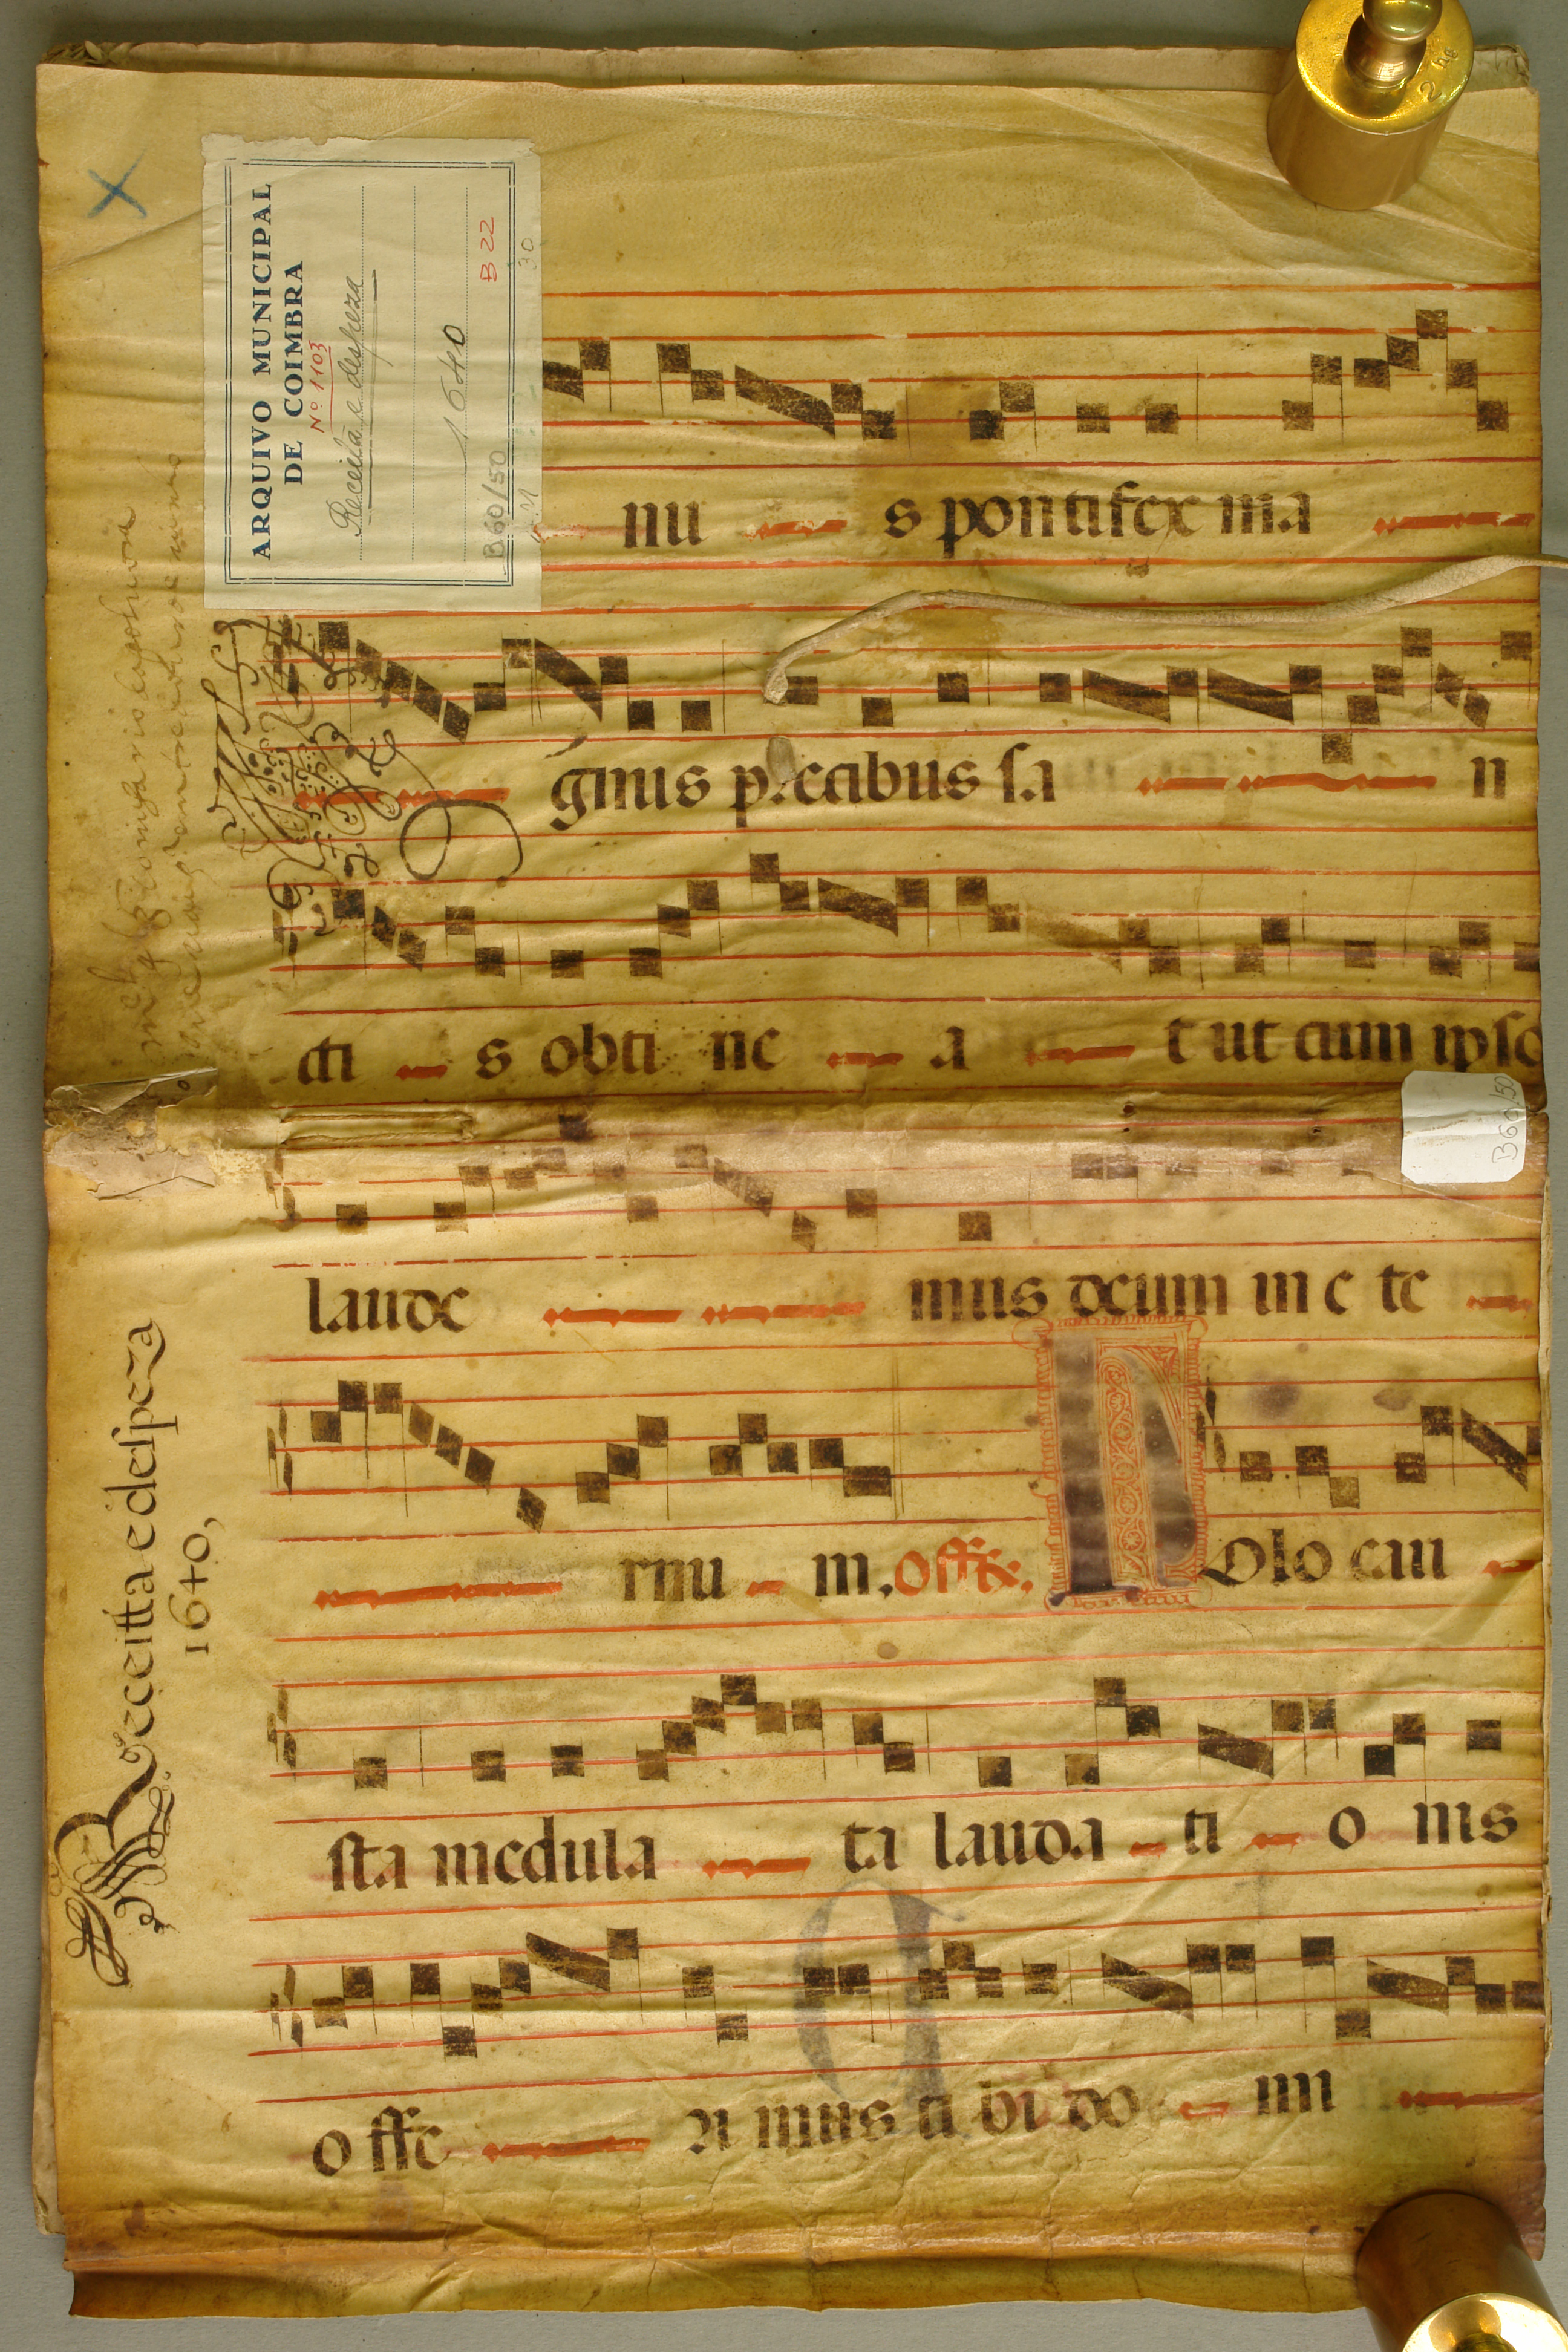 ARQUIVO MUNICIPAL
DE COIMBRA
Nº 1103
Receita e despeza
1640
B 22
30
B60/50
nu s pontifex ma
ginis precibus sa n
cti s obti ne a t ut cum ipso
B60/50
laude mus deum in e te
rnu m. offr.
Holo cau
sta medula ta lauda ti o nis
o ffe ri mus ti bi do mi
Receitta e despeza
1640,
2 hg